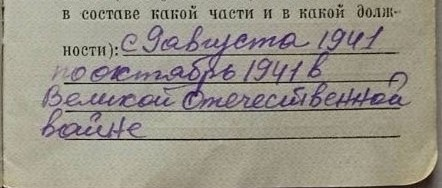 в составе какой части и в какой долж-
ности): с 9 августа 1941
по октябрь 1941 в
Великой Отечественной
войне